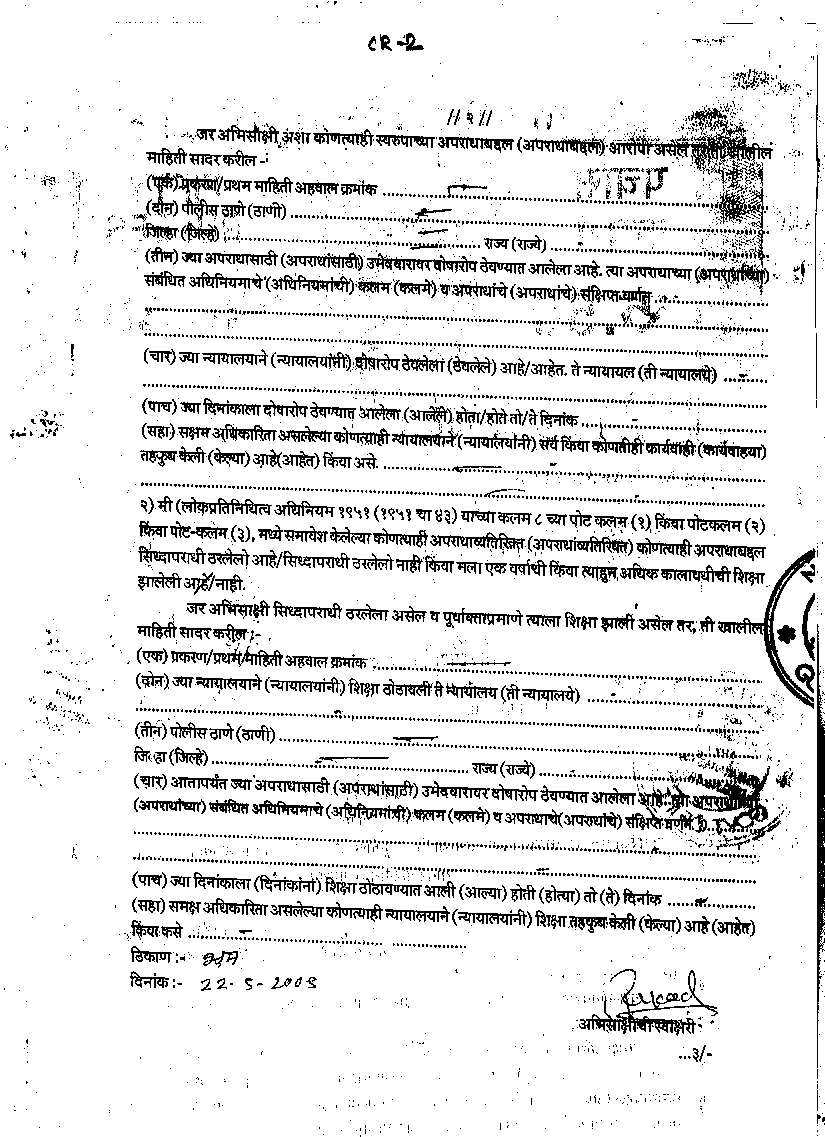 CR-2
//२//
जर अभिसाक्षी अशा कोणत्याही स्वरुपाच्या अपराधाबद्दल (अपराधाबद्दल) आरोपी असेल तर
माहिती सादर करील -
(एक) प्रकरण/प्रथम माहिती अहवाल क्रमांक
(दोन) पोलीस ठाणे (ठाणी)
जिल्हा (जिल्हे) राज्य (राज्ये)
(तीन) ज्या अपराधासाठी (अपराधांसाठी) उमेदवारावर दोषारोप ठेवण्यात आलेला आहे. त्या अपराधाच्या (अपराधांच्या)
संबंधित अधिनियमाचे (अधिनियमांची) कलम (कलमे) व अपराधांचे (अपराधांचे) संक्षिप्त वर्णन
(चार) ज्या न्यायालयाने (न्यायालयांनी) दोषारोप ठेवलेला (ठेवलेले) आहे/आहेत. ते न्यायायल (ती न्यायालये)
(पाच) ज्या दिनांकाला दोषारोप ठेवण्यात आलेला (आलेले) होता/होते तो/ते दिनांक
(सहा) सक्षम अधिकारिता असलेल्या कोणत्याही न्यायालयाने (न्यायालयांनी) सर्व किंवा कोणतीही कार्यवाही (कार्यवाहया)
तहकुब केली (केल्या) आहे(आहेत) किंवा असे.
२) मी (लोकप्रतिनिधित्व अधिनियम १९५१ (१९५१ चा ४३) याच्या कलम ८ च्या पोट कलम (१) किंवा पोटकलम (२)
किंवा पोट-कलम (३), मध्ये समावेश केलेल्या कोणत्याही अपराधाव्यतिरिक्त (अपराधांव्यतिरिक्त) कोणत्याही अपराधाबद्दल
सिध्दापराधी ठरलेलो आहे/सिध्दापराधी ठरलेलो नाही किंवा मला एक वर्षाची किंवा त्याहुन अधिक कालावधीची शिक्षा
झालेली आहे/नाही.
जर अभिसाक्षी सिध्दापराधी ठरलेला असेल व पूर्वोक्ताप्रमाणे त्याला शिक्षा झाली असेल तर, ती खालील
माहिती सादर करील :-
(एक) प्रकरण/प्रथम माहिती अहवाल क्रमांक
(दोन) ज्या न्यायालयाने (न्यायालयांनी) शिक्षा ठोठावली ते न्यायालय (ती न्यायालये)
(तीन) पोलीस ठाणे (ठाणी)
जिल्हा (जिल्हे) राज्य (राज्ये)
(चार) आतापर्यंत ज्या अपराधासाठी (अपराधांसाठी) उमेदवारावर दोषारोप ठेवण्यात आलेला आहे.
(अपराधांच्या) संबंधित अधिनियमाचे (अधिनियमांची) कलम (कलमे) व अपराधाचे(अपराधांचे) संक्षिप्त वर्णन
(पाच) ज्या दिनांकाला (दिनांकांना) शिक्षा ठोठावण्यात आली (आल्या) होती (होत्या) तो (ते) दिनांक
(सहा) समक्ष अधिकारिता असलेल्या कोणत्याही न्यायालयाने (न्यायालयांनी) शिक्षा तहकुब केली (केल्या) आहे (आहेत)
किंवा कसे
ठिकाण :-
दिनांक :- 22-5-2009
अभिसाक्षीची स्वाक्षरी
...३/-